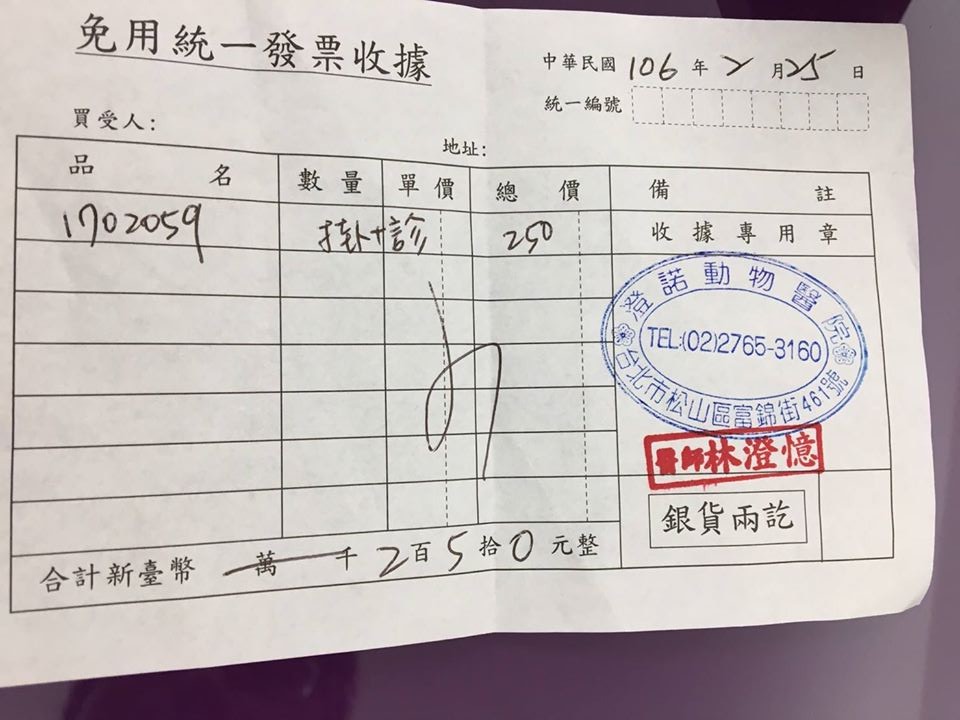 免用統一發票收據
中華民國 106 年 2 月 25 日
統一編號
買受人:
地址:
品名 數量 單價 總價 備註
1702059 掛+診 250 收據專用章
澄諾動物醫院
TEL:(02)2765-3160
台北市松山區富錦街461號
醫師林澄憶
銀貨兩訖
合計新臺幣 萬 千 2 百 5 拾 0 元整